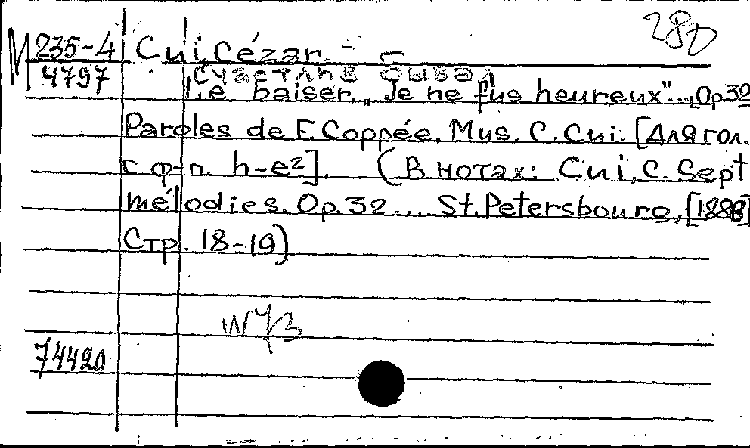 280
М 235-4 Cui, Cézar.
4797
"Le baiser. "Je ne fus heureux"... Op. 32
Paroles de F. Coppée. Mus. C. Cui. [Для гол.
с ф-п. h-e²]. (В нотах: Cui, C. Sept
mélodies. Op. 32... St. Petersbourg, [1886]
Стр. 18-19)
74420